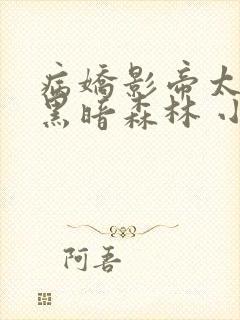 病嬌影帝太
黑暗森林 小
阿吾